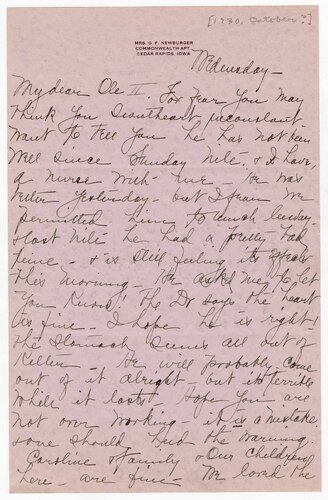 [1930, October?]
MRS. G. F. NEWBURGER
COMMONWEALTH APT.
CEDAR RAPIDS, IOWA
Wednesday -
My dear Ole II. For fear you may
think your Sweetheart inconstant
want to tell you he has not been
well since Sunday nite. & I have
a nurse with me - He was
better yesterday - but I fear we
permitted him to much leeway
& last nite he had a pretty bad
time - & is still feeling its effects
this morning - He asked me to let
you know! The Dr says the heart
is fine - I hope he is right!
the stomach seems all out of
kilter - He will probably come
out of it alright - but its terrible
while it lasts. Hope you are
not over working - it is a mistake
some should heed the warning.
Caroline & family & Our children
here - are fine - We loved the